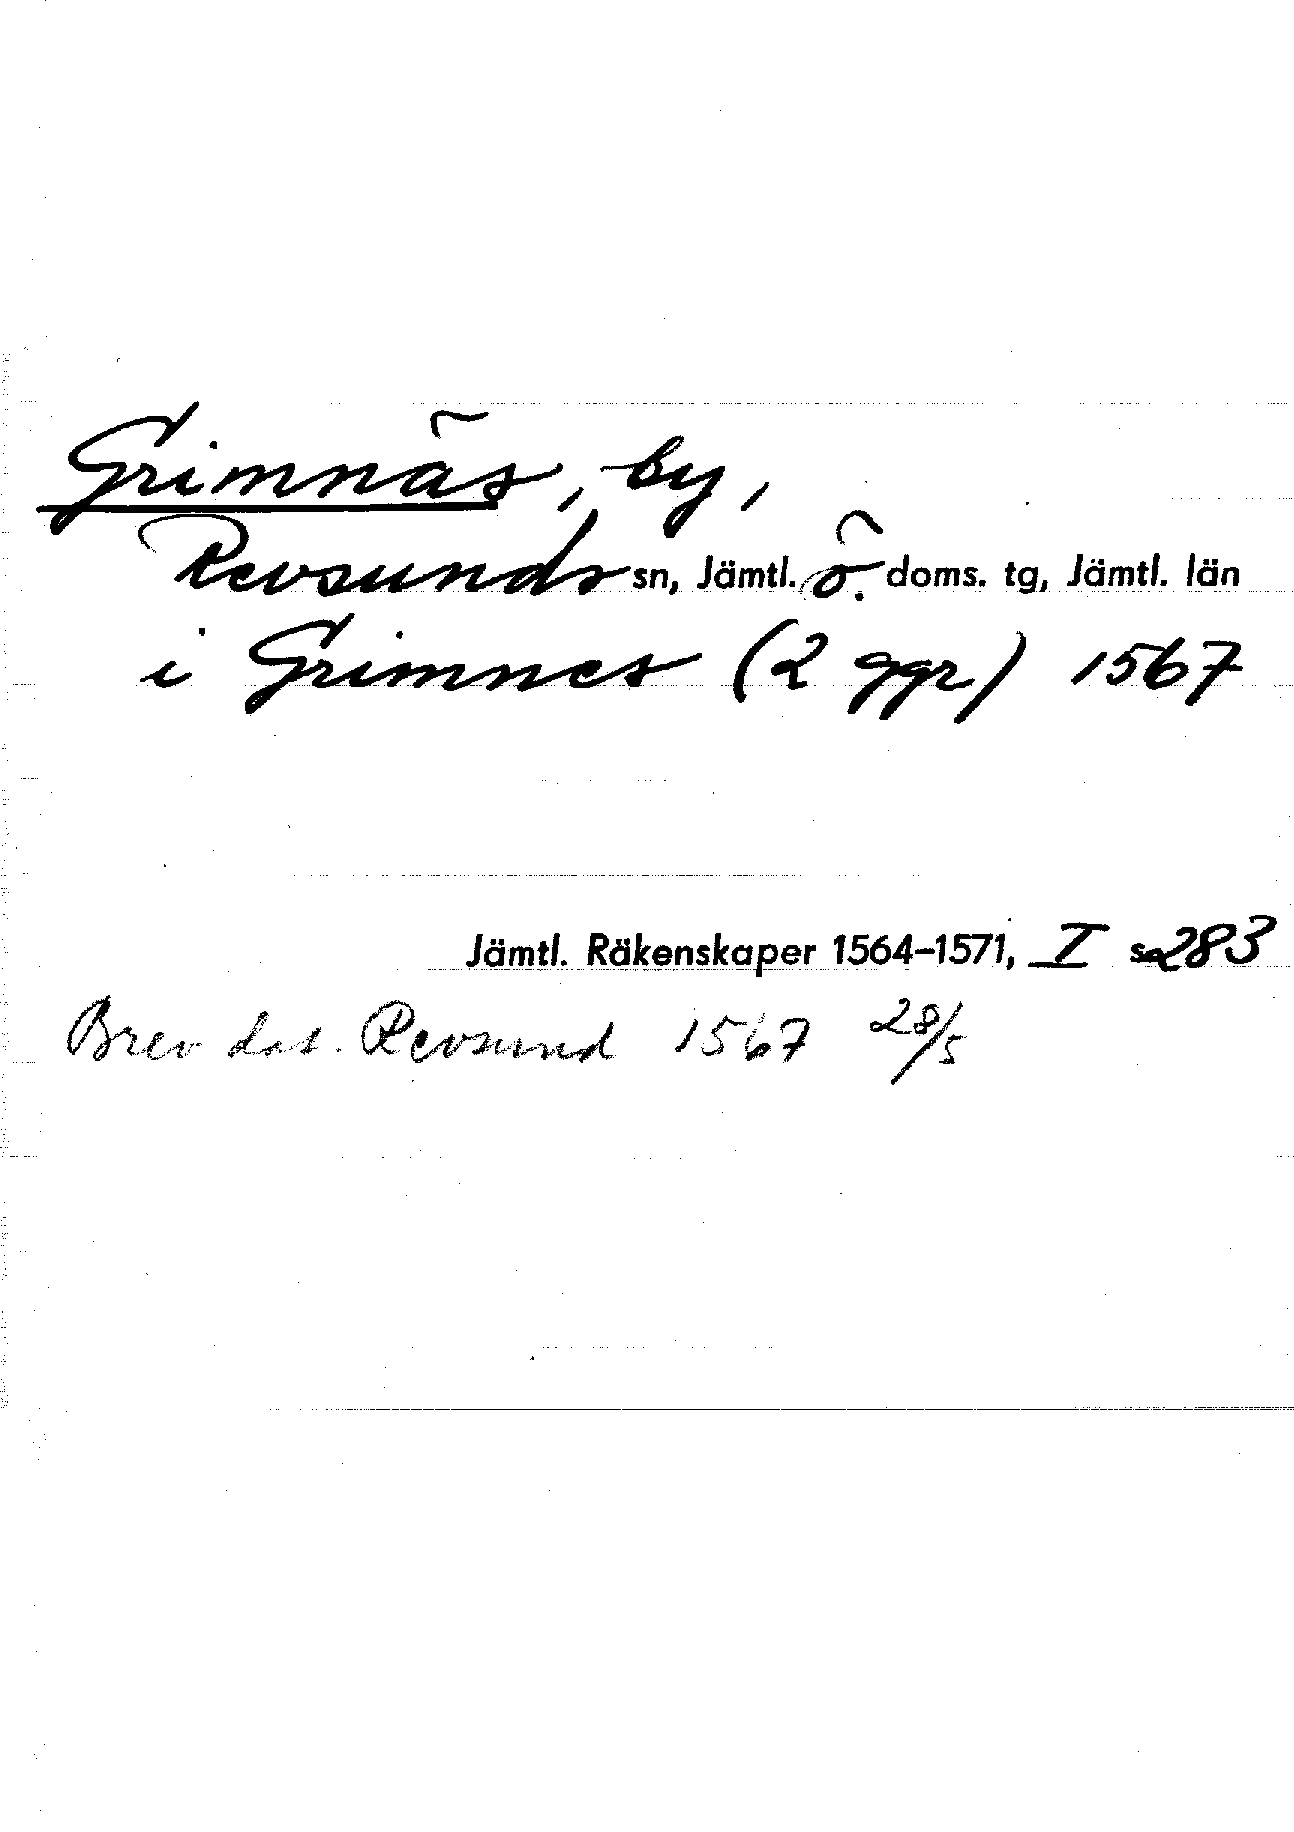 Grimnäs, by,
Revsunds sn, Jämtl. ö. doms. tg, Jämtl. län
i Grimnes (2 ggr) 1567
Jämtl. Räkenskaper 1564-1571, I s. 283
Brev dat. Revsund 1567 28/5